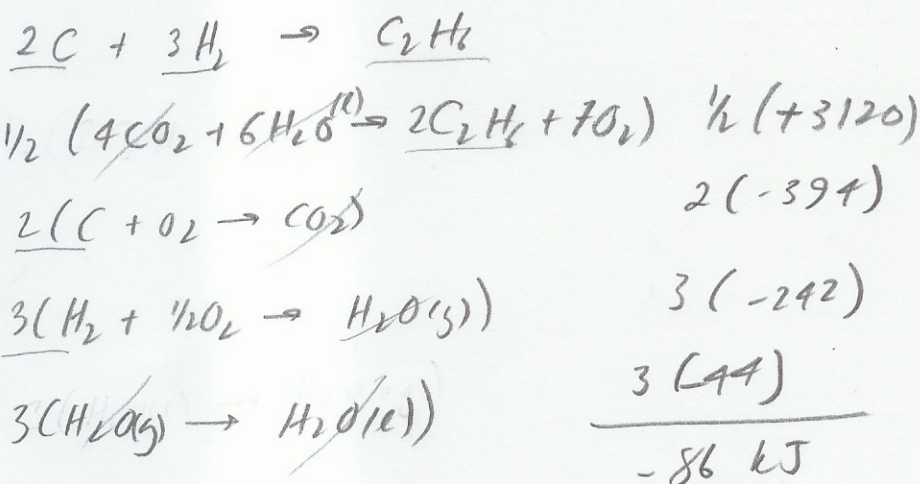 2C + 3H₂ → C₂H₆
½ (4CO₂ + 6H₂O(l) → 2C₂H₆ + 7O₂) ½ (+3120)
2(C + O₂ → CO₂) 2(-394)
3(H₂ + ½O₂ → H₂O(g)) 3(-242)
3(H₂O(g) → H₂O(l)) 3(-44)
-86 kJ